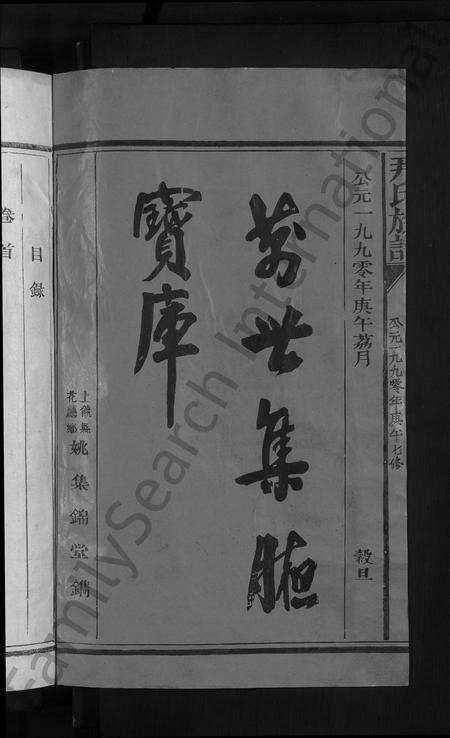 尹氏族譜
公元一九九零年庚午七修
公元一九九零年庚午荔月
穀旦
萬世集
寶庫
上饒縣
花廳鄉
姚集錦堂鐫
目錄
卷首
FamilySearch International